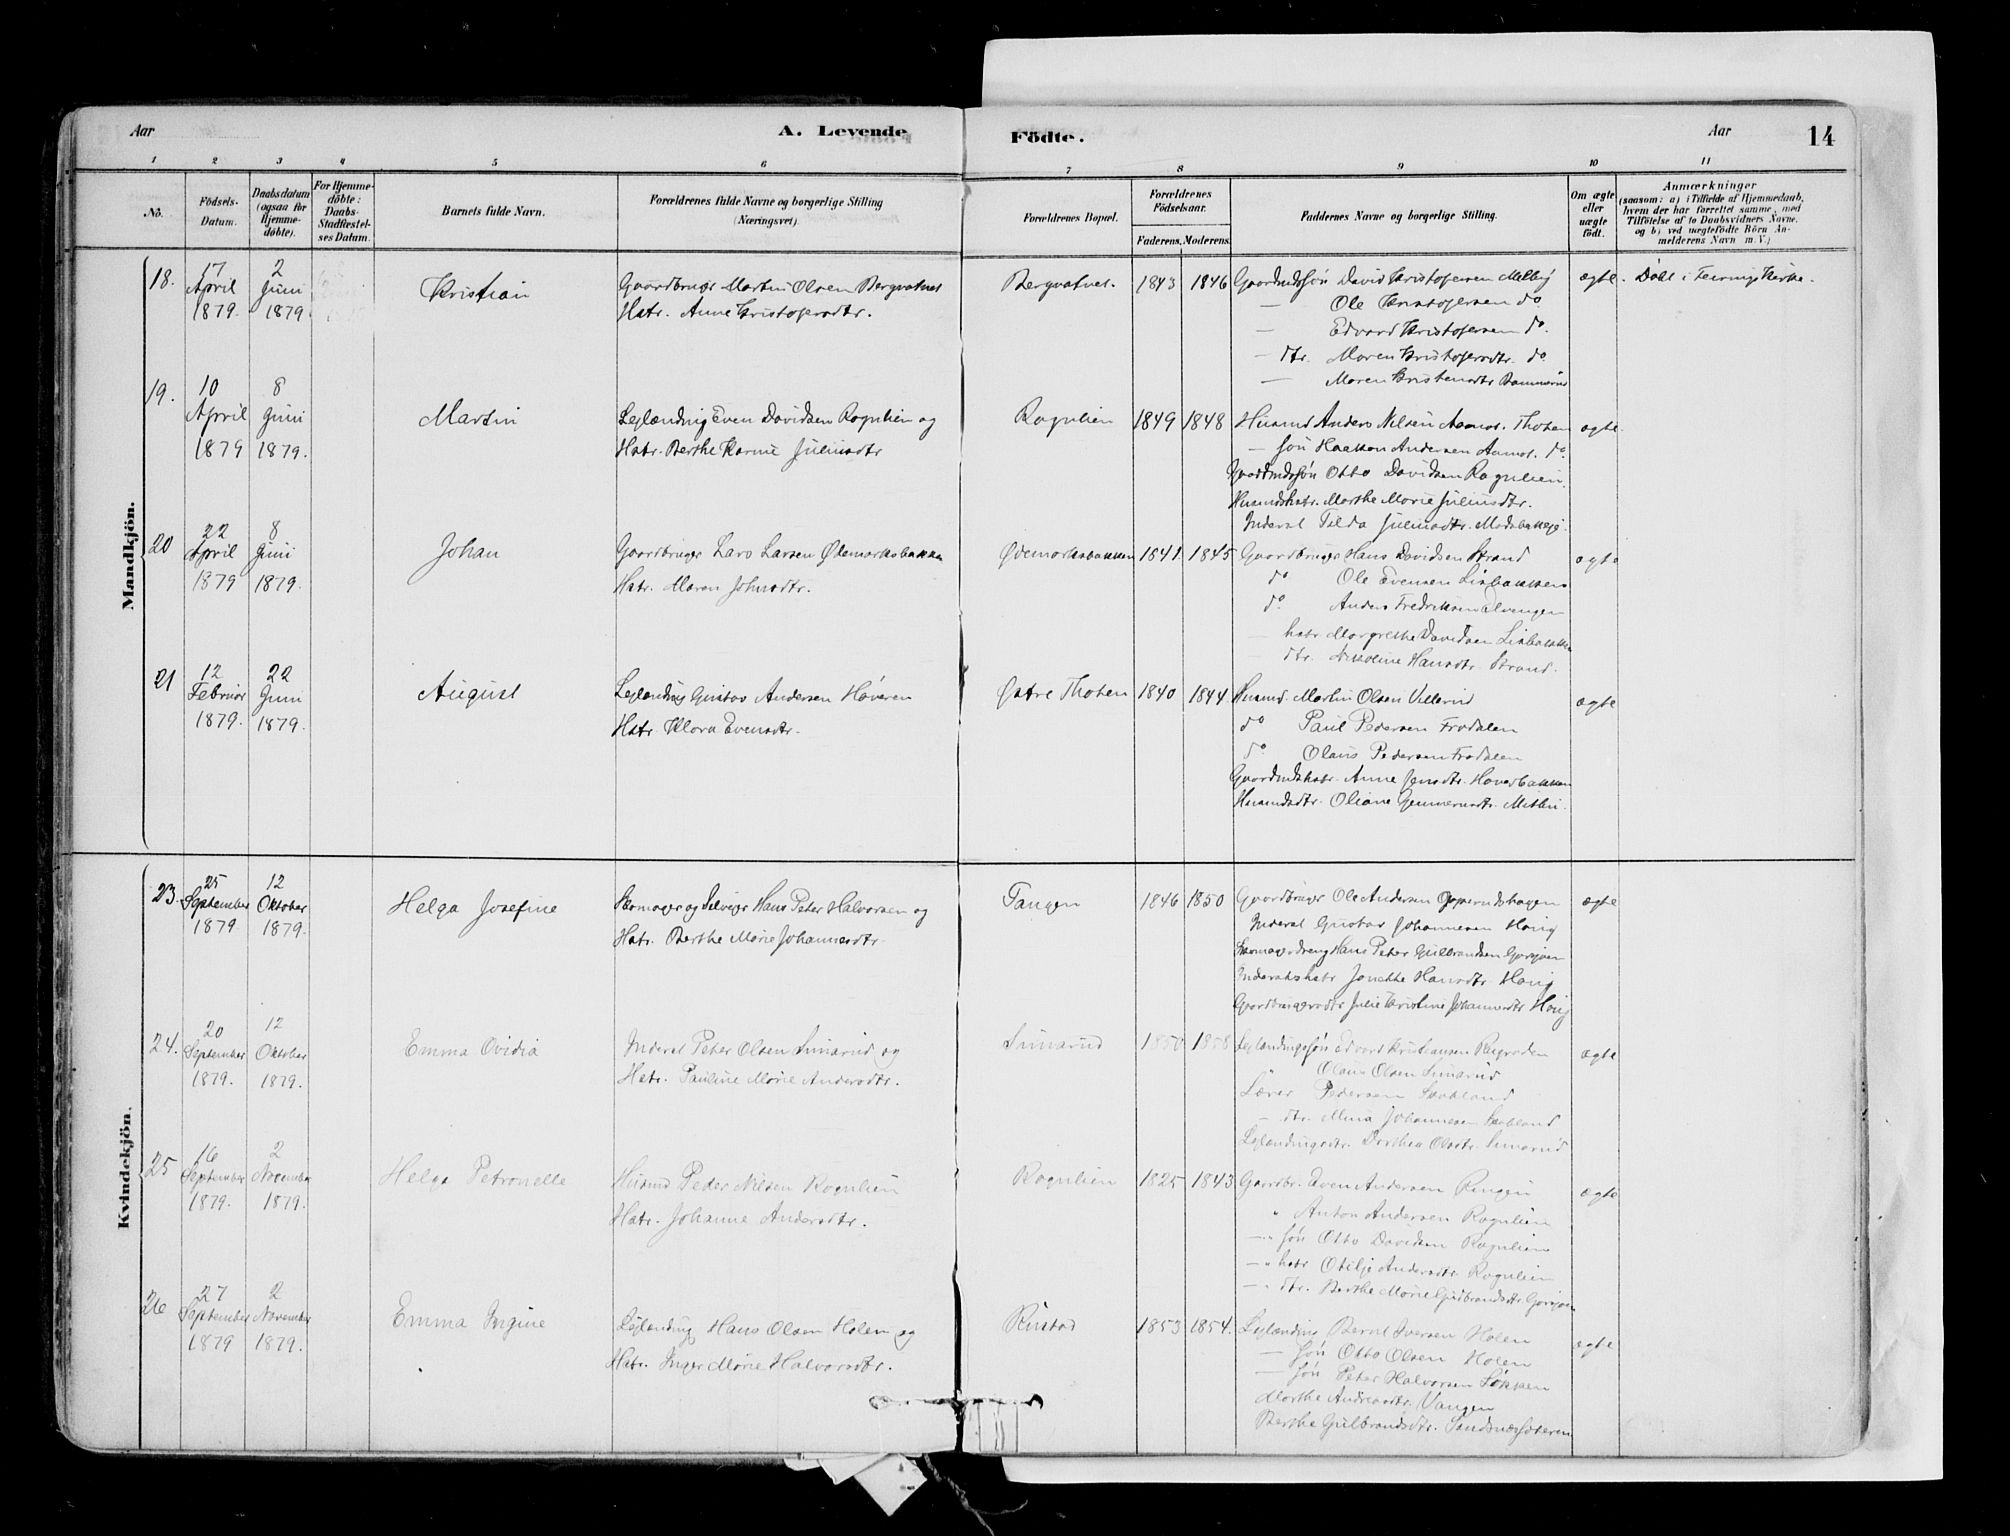 Aar
A. Levende
Födte.
Aar
14
1 2 3 4 5 6 7 8 9 10 11
No.
Födsels-Datum.
Daabsdatum (ogsaa for Hjemmedöbte).
For Hjemmedöbte: Daabs-Stadfæstelses Datum.
Barnets fulde Navn.
Forældrenes fulde Navne og borgerlige Stilling (Næringsvei)
Forældrenes Bopæl.
Forældrenes Födselsaar.
Faderens. Moderens.
Faddernes Navne og borgerlige Stilling.
Om ægte eller uægte födt.
Anmærkninger
(saasom: a) i Tilfælde af Hjemmedaab, hvem der har forrettet samme, med Tilföielse af to Daabsvidners Navne, og b) ved uægtefödte Börn Anmelderens Navn m. V.)
Mandkjön.
18. 17 April 1879. 2 Juni 1879. Kristian
Gaardbruger Martin Olsen Bergvatnet
Hstr. Anne Kristofersdtr.
Bergvatnet. 1843 1846
Gaardmdssøn David Kristofersen Melby
— Ole Kristofersen do
— Edvard Kristofersen do.
— dtr. Maren Kristofersdtr. do
— Maren Kristensdtr
ægte. Døbt i Feirings Kirke.
19. 10 April 1879 8 Juni 1879. Martin
Leilænding Even Davidsen Rognlien og
Hstr. Berthe Karine Juliusdtr
Rognlien 1849 1848
Husmd Anders Nilsen Aamot. Thoten
— søn Haakon Andersen Aamot. do.
Gaardmdssøn Otto Davidsen Rognlien.
Husmdshstr. Marthe Marie Juliusdtr.
Inderst Tilda Juliusdtr.
ægte.
20 22 April 1879 8 Juni 1879. Johan
Gaardbruger Lars Larsen Ødemarksbakken
Hstr. Maren Johnsdtr.
Ødemarksbakken 1841. 1845
Gaardbruger Hans Davidsen Strand
do Ole Evensen Liabakken
do. Anders Fredriksen
— hstr Margrethe Davidsen Liabakken
— dtr. Nikoline Hansdtr. Strand.
ægte
21 12 Februar 1879. 22 Juni 1879. August
Leilænding Gustav Andersen Haveren
Hstr. Klara Evensdtr.
Østre Thoten 1840 1844
Husmd. Martin Olsen Villerud
do Paul Pedersen Frodalen
do. Olaus Pedersen Frodalen
Gaardmdshstr. Anne Jensdtr.
Husmdsdtr. Oliane
ægte
Kvindekjön.
23. 25 September 1879. 12 Oktober 1879. Helga Josefine
Skomager og Selveier Hans Peter Halvorsen og
Hstr. Berthe Marie Johannesdtr.
Tangen 1846 1850
Gaardbruger Ole Andersen
Inderst Gustav Johannesen Honig
Skomagerdreng Hans Peter Gulbrandsen
Inderstshstr Jonette Hansdtr Honig
Gaardbrugersdtr Julie Kristine Johannesdtr Honig
ægte
24. 20 September 1879. 12 Oktober 1879. Emma Ovidia
Inderst Peter Olsen Linarud og
Hstr. Pauline Marie Andersdtr.
Linarud 1850 1858
Leilændingssøn Edvard Kristiansen
" Olaus Olsen Linarud
Lærer Pedersen
— dtr. Mina Johannesen
Leilændingsdtr. Dorthea Olsdtr. Linarud
ægte
25 16 September 1879. 2 November 1879. Helga Petronelle
Husmd Peder Nilsen Rognlien
Hstr. Johanne Andersdtr.
Rognlien 1825 1843
Gaardbr. Even Andersen Ringen
" Anton Andersen Rognlien
—" søn Otto Davidsen Rognlien
—" hstr Otilje Andersdtr. Rognlien
—" dtr. Berthe Marie Gulbrandsdtr.
ægte
26 27 September 1879 2 November 1879. Emma Ingine
Leilænding Hans Olsen Holen og
Hstr. Inger Marie Halvorsdtr.
Rustad 1853 1854.
Leilænding Bernt Iversen Holen
— søn Otto Olsen Holen
— søn Peter Halvorsen Løkken
Marthe Andreasdtr. Vangen
Berthe Gulbrandsdtr.
ægte